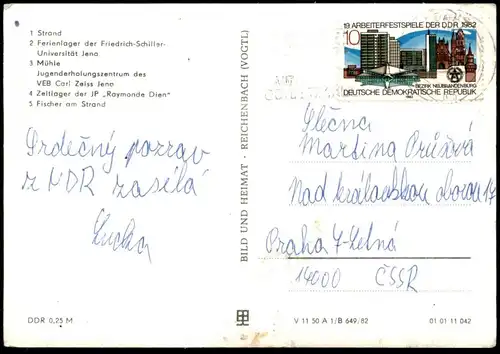 1 Strand
2 Ferienlager der Friedrich-Schiller-
Universität Jena
3 Mühle
Jugenderholungszentrum des
VEB Carl Zeiss Jena
4 Zeltlager der JP „Raymonde Dien"
5 Fischer am Strand
Srdečný pozrav
z NDR zasílá
Lucka
DDR 0,25 M
BILD UND HEIMAT · REICHENBACH (VOGTL)
19. ARBEITERFESTSPIELE DER DDR 1982
10
BEZIRK NEUBRANDENBURG
DEUTSCHE DEMOKRATISCHE REPUBLIK
Slečna
Martina
Nad královskou oborou 17
Praha 7-Letná
17000 ČSSR
V 11 50 A 1/B 649/82
01 01 11 042